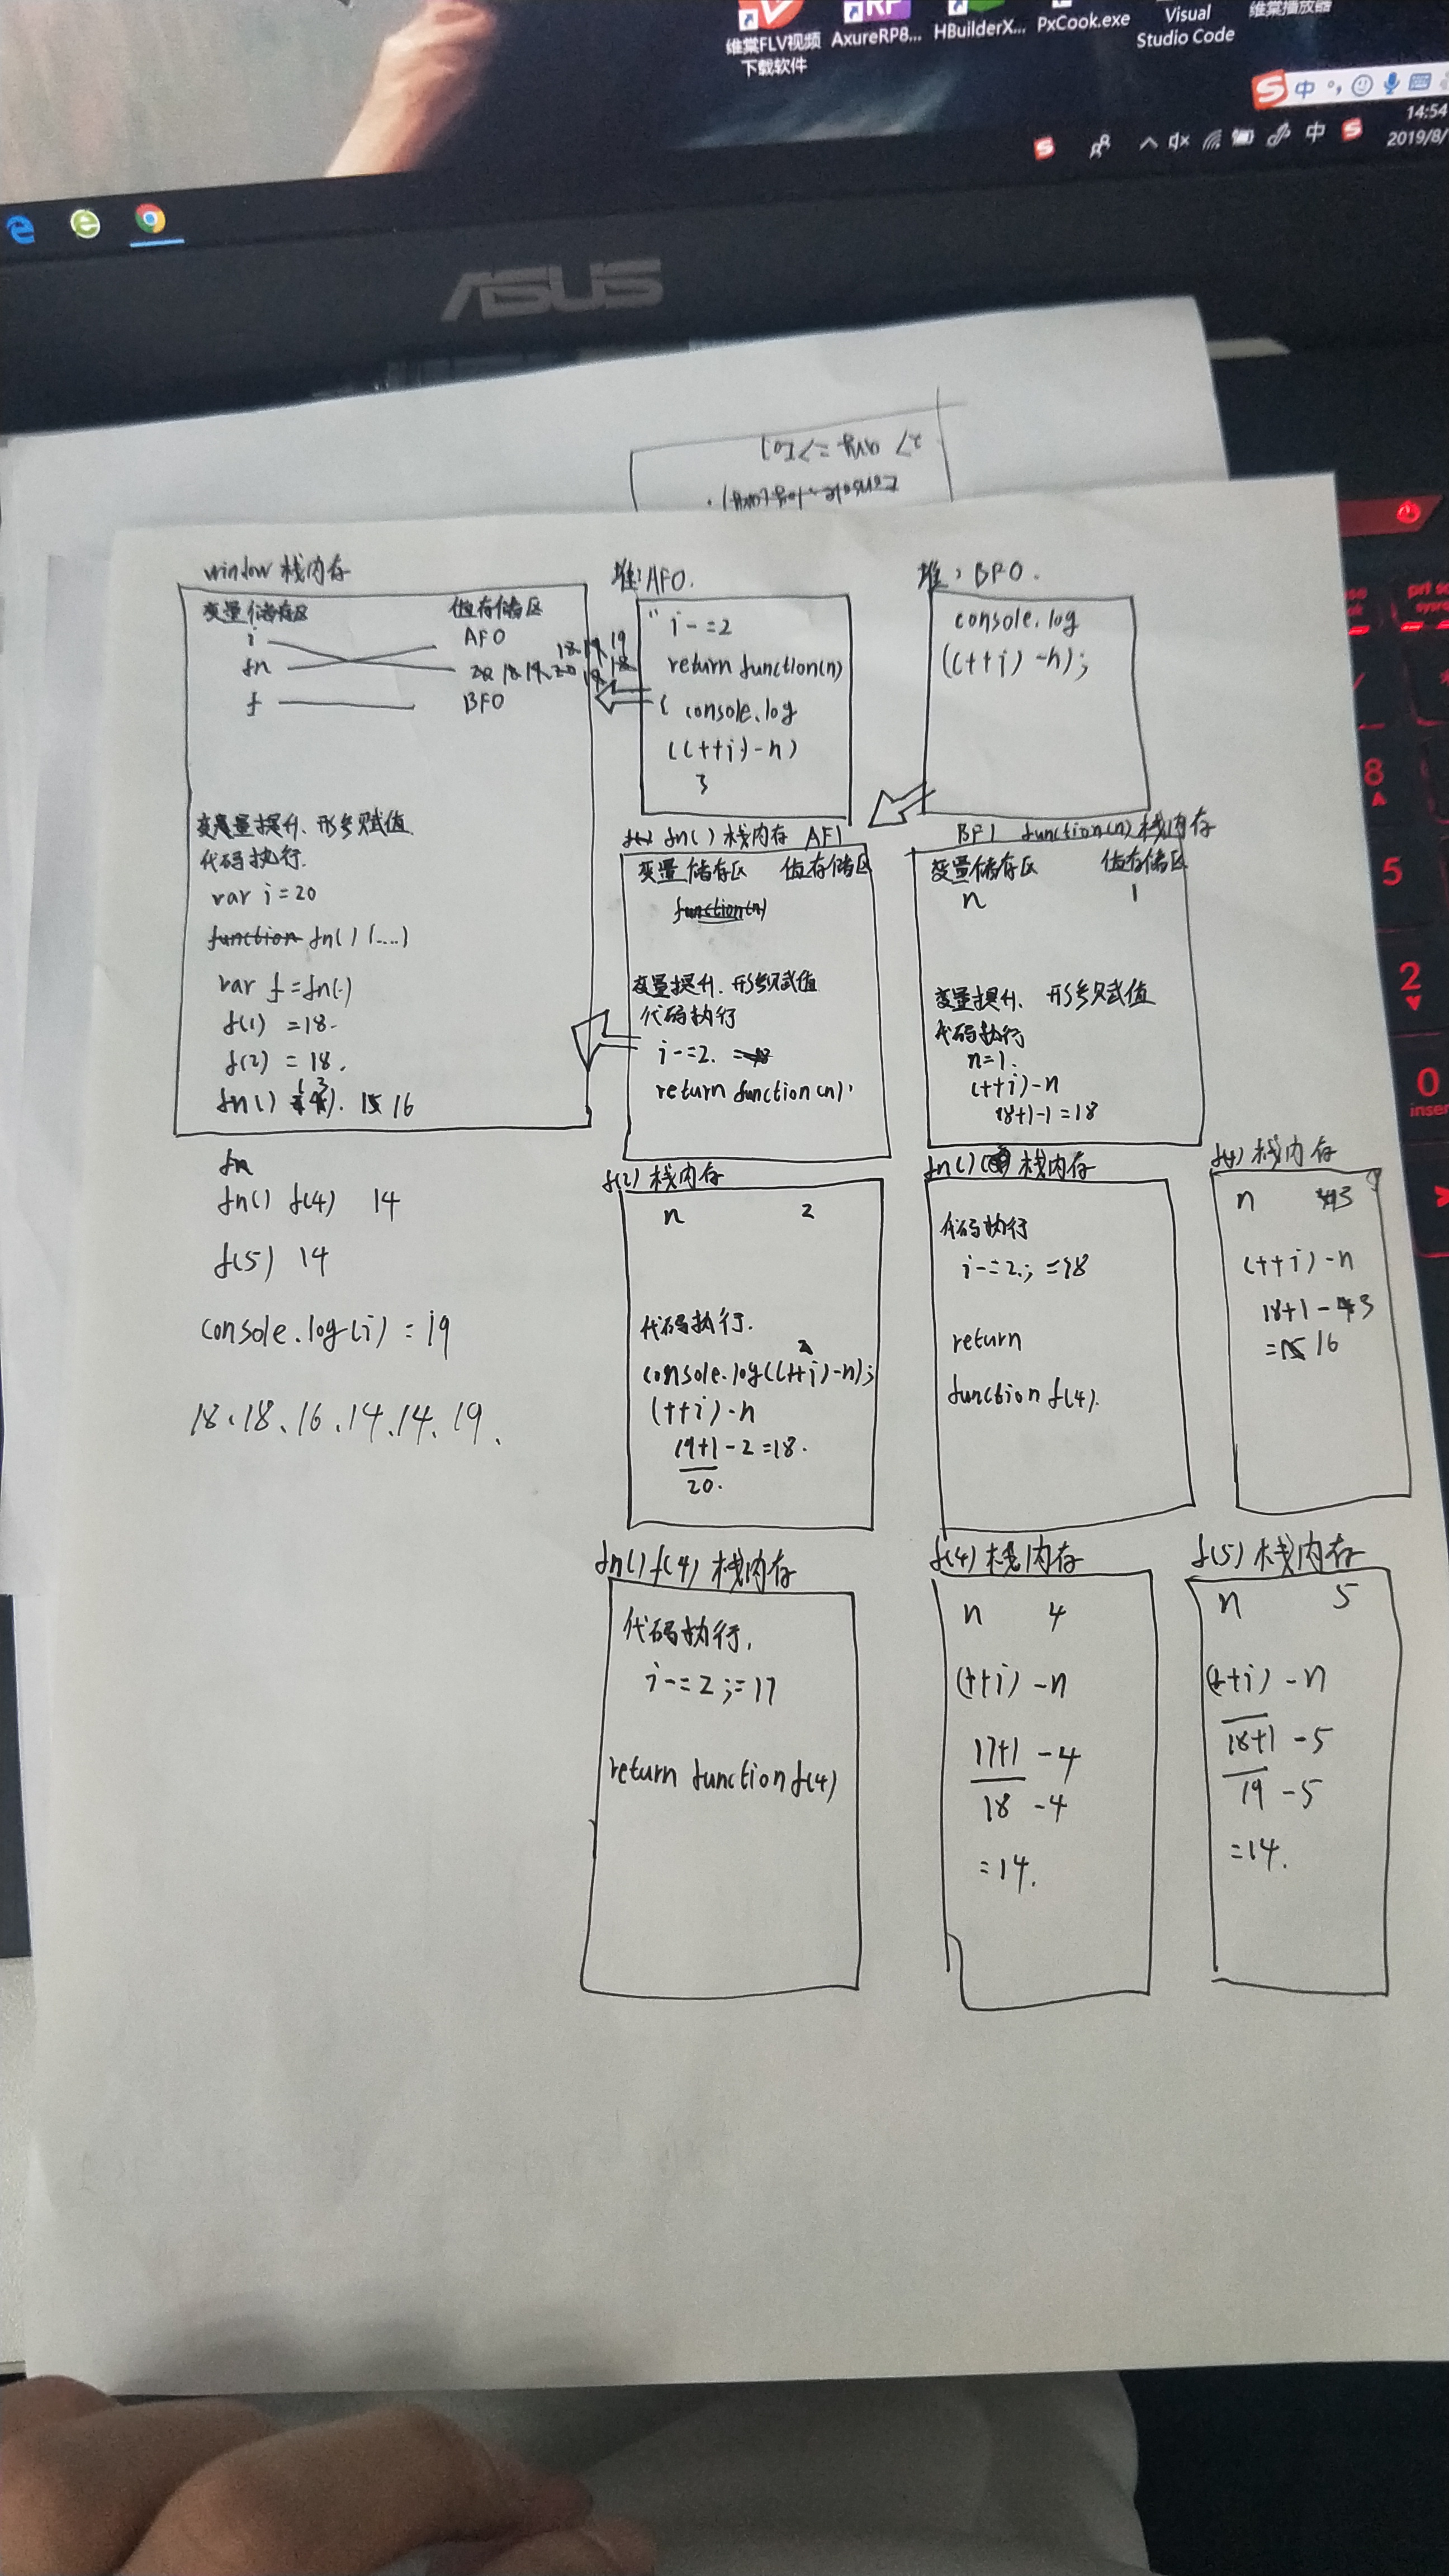 维棠FLV视频
下载软件
AxureRP8...
HBuilderX...
PxCook.exe
Visual
Studio Code
维棠播放器
中
中
14:54
2019/8/
ASUS
window 栈内存
变量储存区 值存储区
i AFO
fn 20 18 19 20 18
18 17 18 19
f BFO
变量提升、形参赋值
代码执行
var i=20
function fn() {....}
var f=fn()
f(1) =18
f(2) = 18.
fn() (3). 16
fn
fn() f(4) 14
f(5) 14
console.log(i) = 19
18、18、16、14、14、19、
堆:AFO.
" i-=2
return function(n)
{ console.log
((++i)-n)
}
堆:BFO.
console.log
((++i)-n);
fn() 栈内存 AF1
变量储存区 值存储区
function(n)
变量提升、形参赋值
代码执行
i-=2.
return function(n)
BF1 function(n) 栈内存
变量储存区 值存储区
n 1
变量提升、形参赋值
代码执行
n=1.
(++i)-n
18+1-1=18
f(2) 栈内存
n 2
代码执行.
console.log((++i)-n);
(++i)-n
19+1-2=18.
20.
fn() 栈内存
代码执行
i-=2; =18
return
function f(4).
f(4) 栈内存
n 3
(++i)-n
18+1-3
=16
fn() f(4) 栈内存
代码执行,
i-=2;=17
return function f(4)
f(4) 栈内存
n 4
(++i)-n
17+1-4
18-4
=14.
f(5) 栈内存
n 5
(++i)-n
18+1-5
19-5
=14.
8
5
2
0
inser